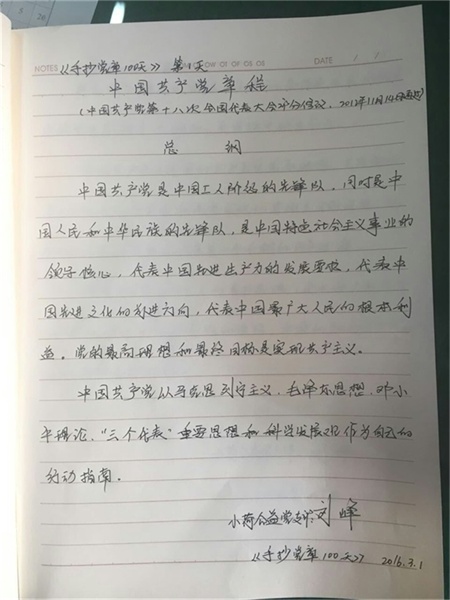 NOTES
DATE / /
《手抄党章100天》 第1天
中国共产党章程
(中国共产党第十八次全国代表大会部分修改，2012年11月14日通过)
总 纲
中国共产党是中国工人阶级的先锋队，同时是中
国人民和中华民族的先锋队，是中国特色社会主义事业的
领导核心，代表中国先进生产力的发展要求，代表中
国先进文化的前进方向，代表中国最广大人民的根本利
益。党的最高理想和最终目标是实现共产主义。
中国共产党以马克思列宁主义，毛泽东思想，邓小
平理论，"三个代表"重要思想和科学发展观作为自己的
行动指南。
小荷公益党支部: 刘峰
《手抄党章100天》 2016.3.1